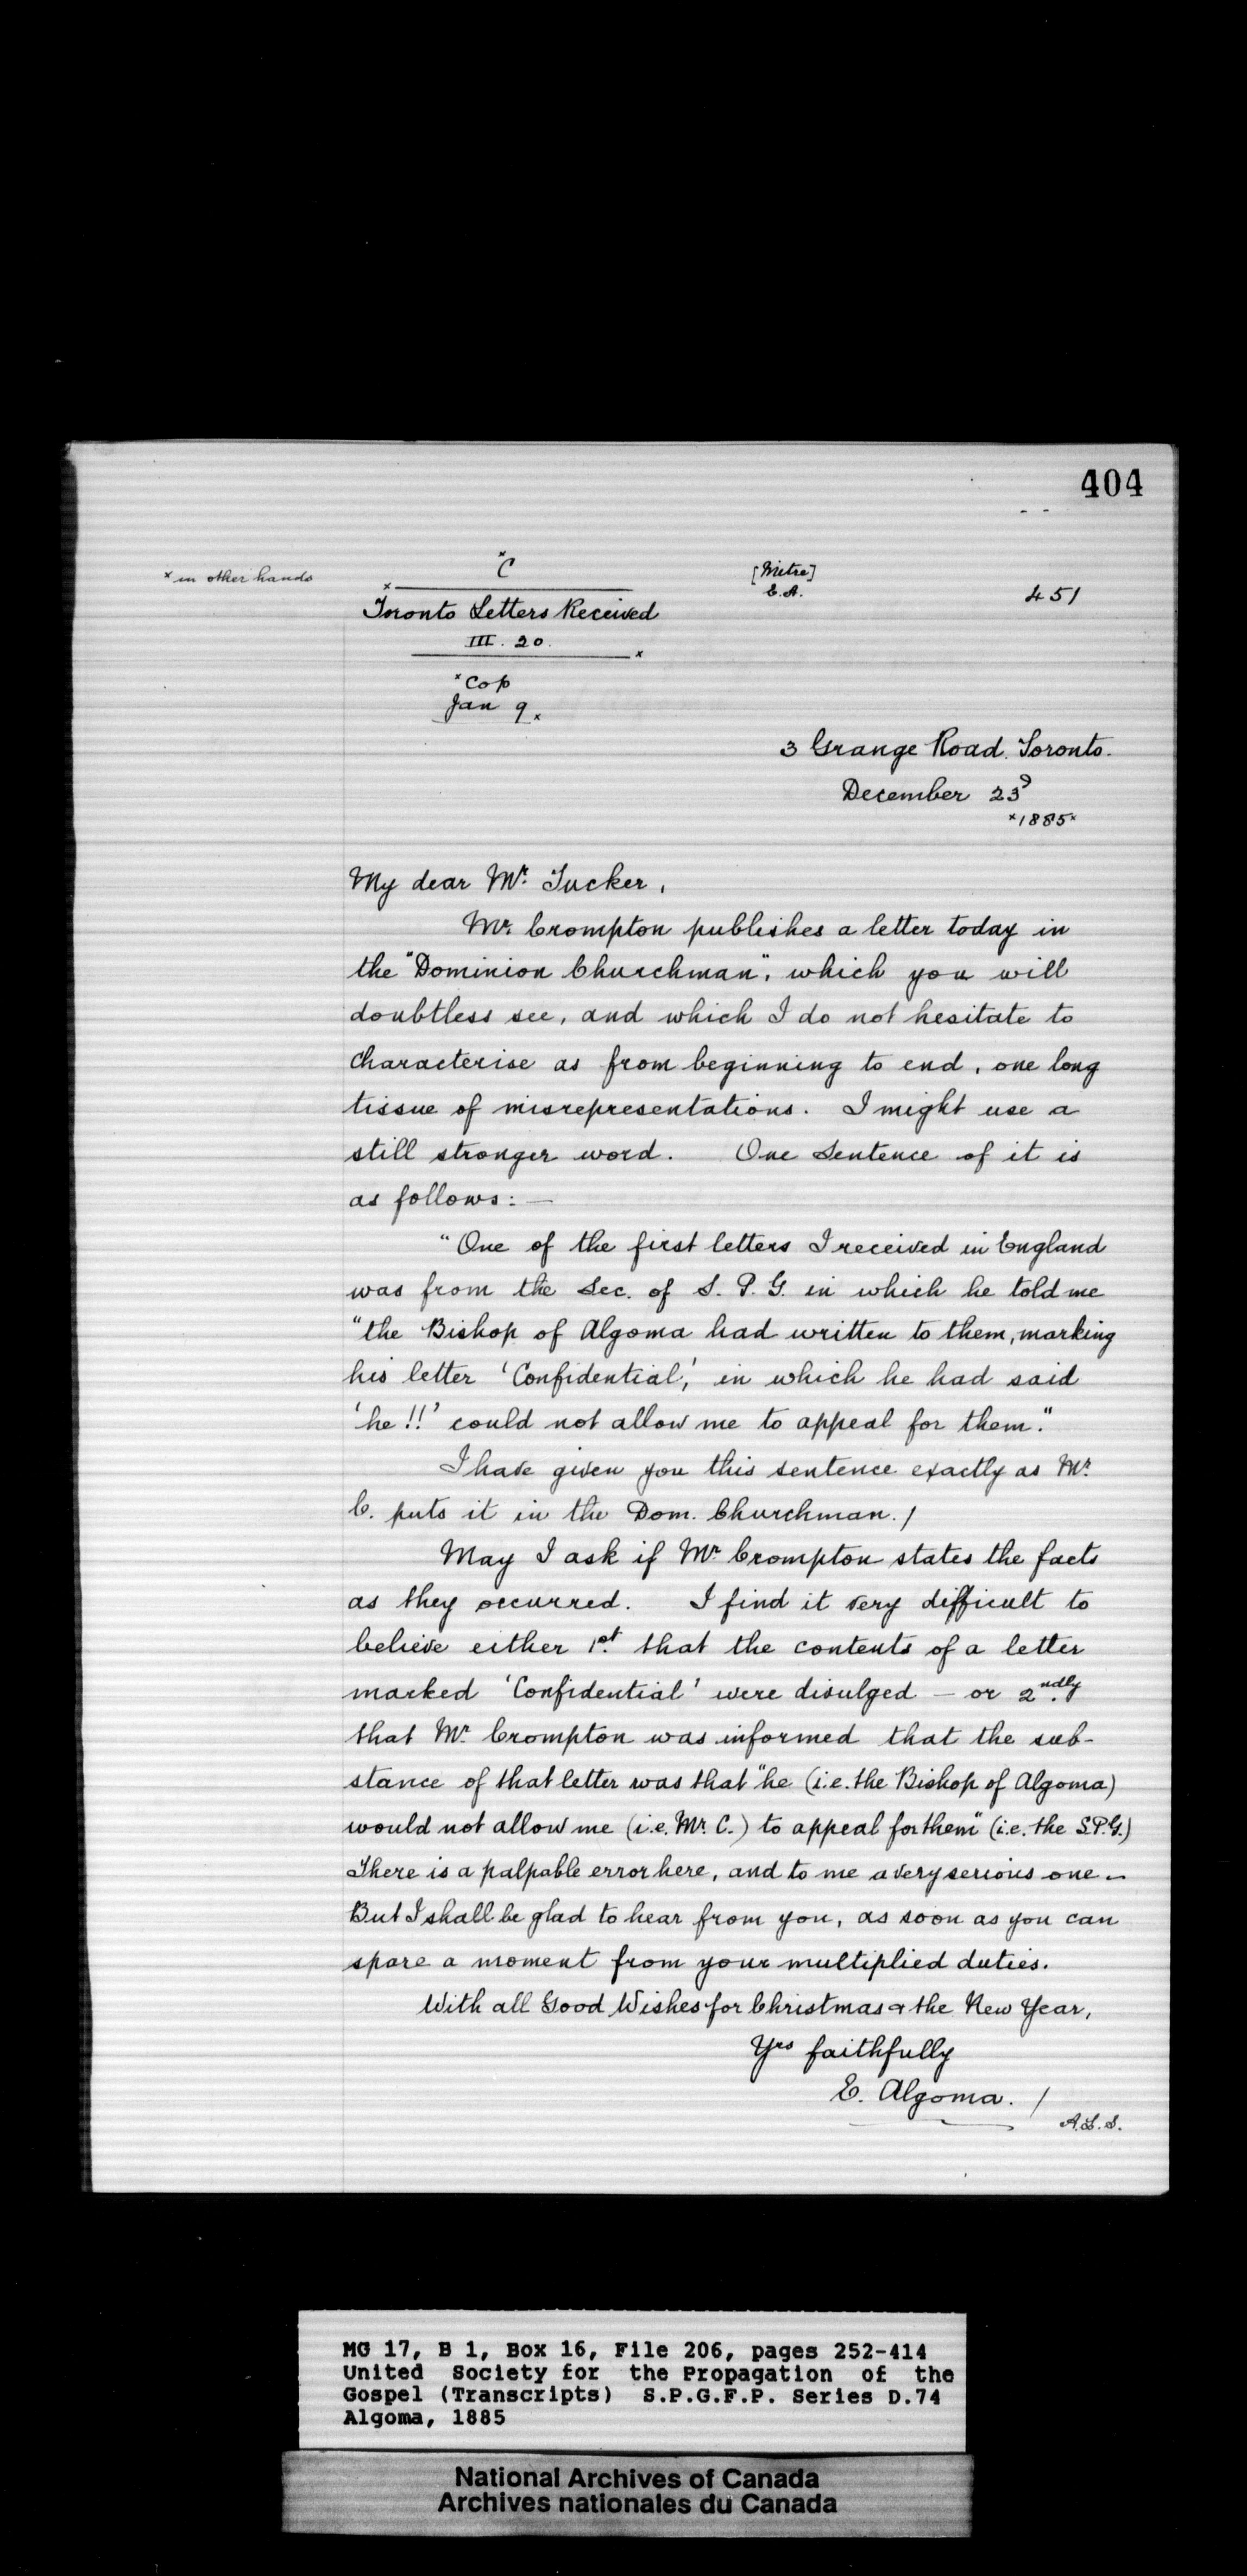 404
x in other hands
x C
[Mitre]
E.A.
451
x
Toronto Letters Received
III. 20.
x
x Cop
Jan 9. x
3 Grange Road. Toronto.
December 23d
x1885x
My dear Mr. Tucker,
Mr. Crompton publishes a letter today in
the "Dominion Churchman", which you will
doubtless see, and which I do not hesitate to
characterise as from beginning to end, one long
tissue of misrepresentations. I might use a
still stronger word. One Sentence of it is
as follows: —
"One of the first letters I received in England
was from the Sec. of S. P. G. in which he told me
"the Bishop of Algoma had written to them, marking
his letter 'Confidential,' in which he had said
'he!!' could not allow me to appeal for them."
I have given you this sentence exactly as Mr.
C. puts it in the Dom. Churchman. /
May I ask if Mr. Crompton states the facts
as they occurred. I find it very difficult to
believe either 1st that the contents of a letter
marked 'Confidential' were divulged — or 2ndly
that Mr. Crompton was informed that the sub-
stance of that letter was that "he (i.e. the Bishop of Algoma)
would not allow me (i.e. Mr. C.) to appeal for them" (i.e. the S.P.G.)
There is a palpable error here, and to me a very serious one —
But I shall be glad to hear from you, as soon as you can
spare a moment from your multiplied duties.
With all Good Wishes for Christmas & the New Year,
Yrs faithfully
E. Algoma. /
A.L.S.
MG 17, B 1, Box 16, File 206, pages 252-414
United Society for the Propagation of the
Gospel (Transcripts) S.P.G.F.P. Series D.74
Algoma, 1885
National Archives of Canada
Archives nationales du Canada